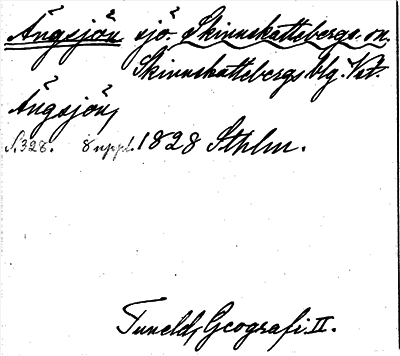 Ängsjön sjö Skinnskattebergs sn.
Skinnskattebergs blg. Vstm.
Ängsjön,
S. 328. 8 uppl. 1828 Sthlm.
Tuneld, Geografi II.